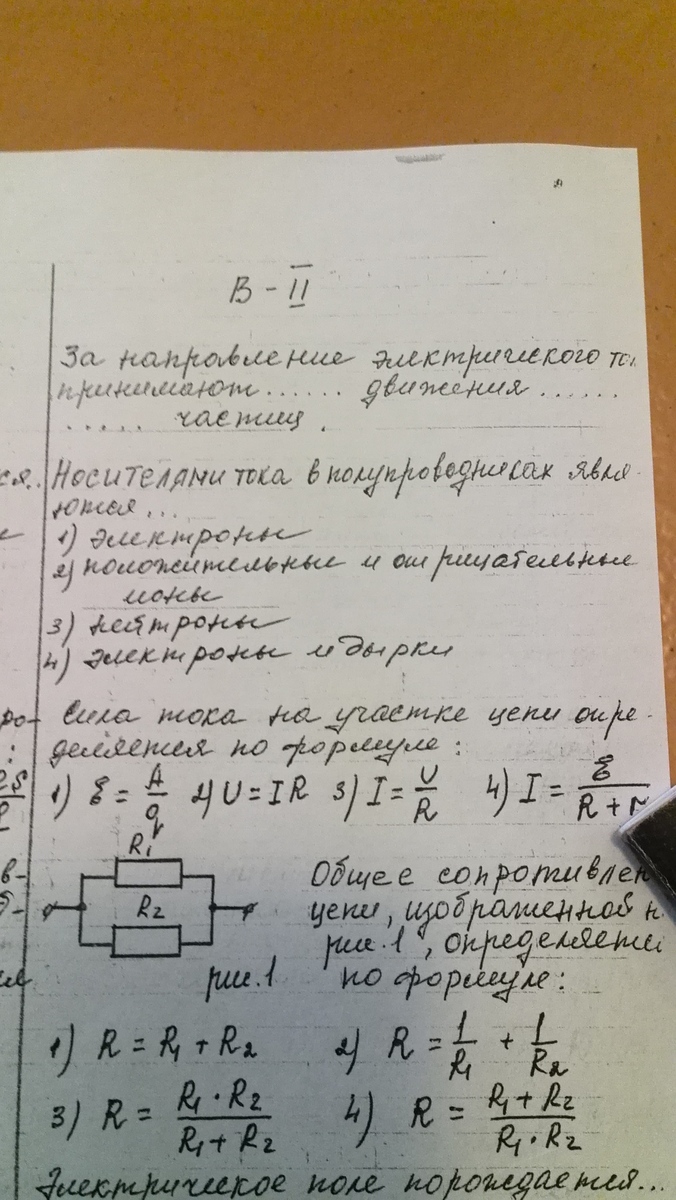 В - II
За направление электрического то
принимают...... движения......
..... частиц.
ся. Носителями тока в полупроводниках явля-
ются...
1) электроны
2) положительные и отрицательные
ионы
3) нейтроны
4) электроны и дырки
ро- Сила тока на участке цепи опре-
: деляется по формуле:
1) ℰ = A/q 2) U = IR 3) I = U/R 4) I = ℰ/(R + r
R₁
R₂
рис.1
в- Общее сопротивлен
цепи, изображенной н
рис.1, определяетс
по формуле:
1) R = R₁ + R₂ 2) R = 1/R₁ + 1/R₂
3) R = (R₁ · R₂)/(R₁ + R₂) 4) R = (R₁ + R₂)/(R₁ · R₂)
Электрическое поле порождается...